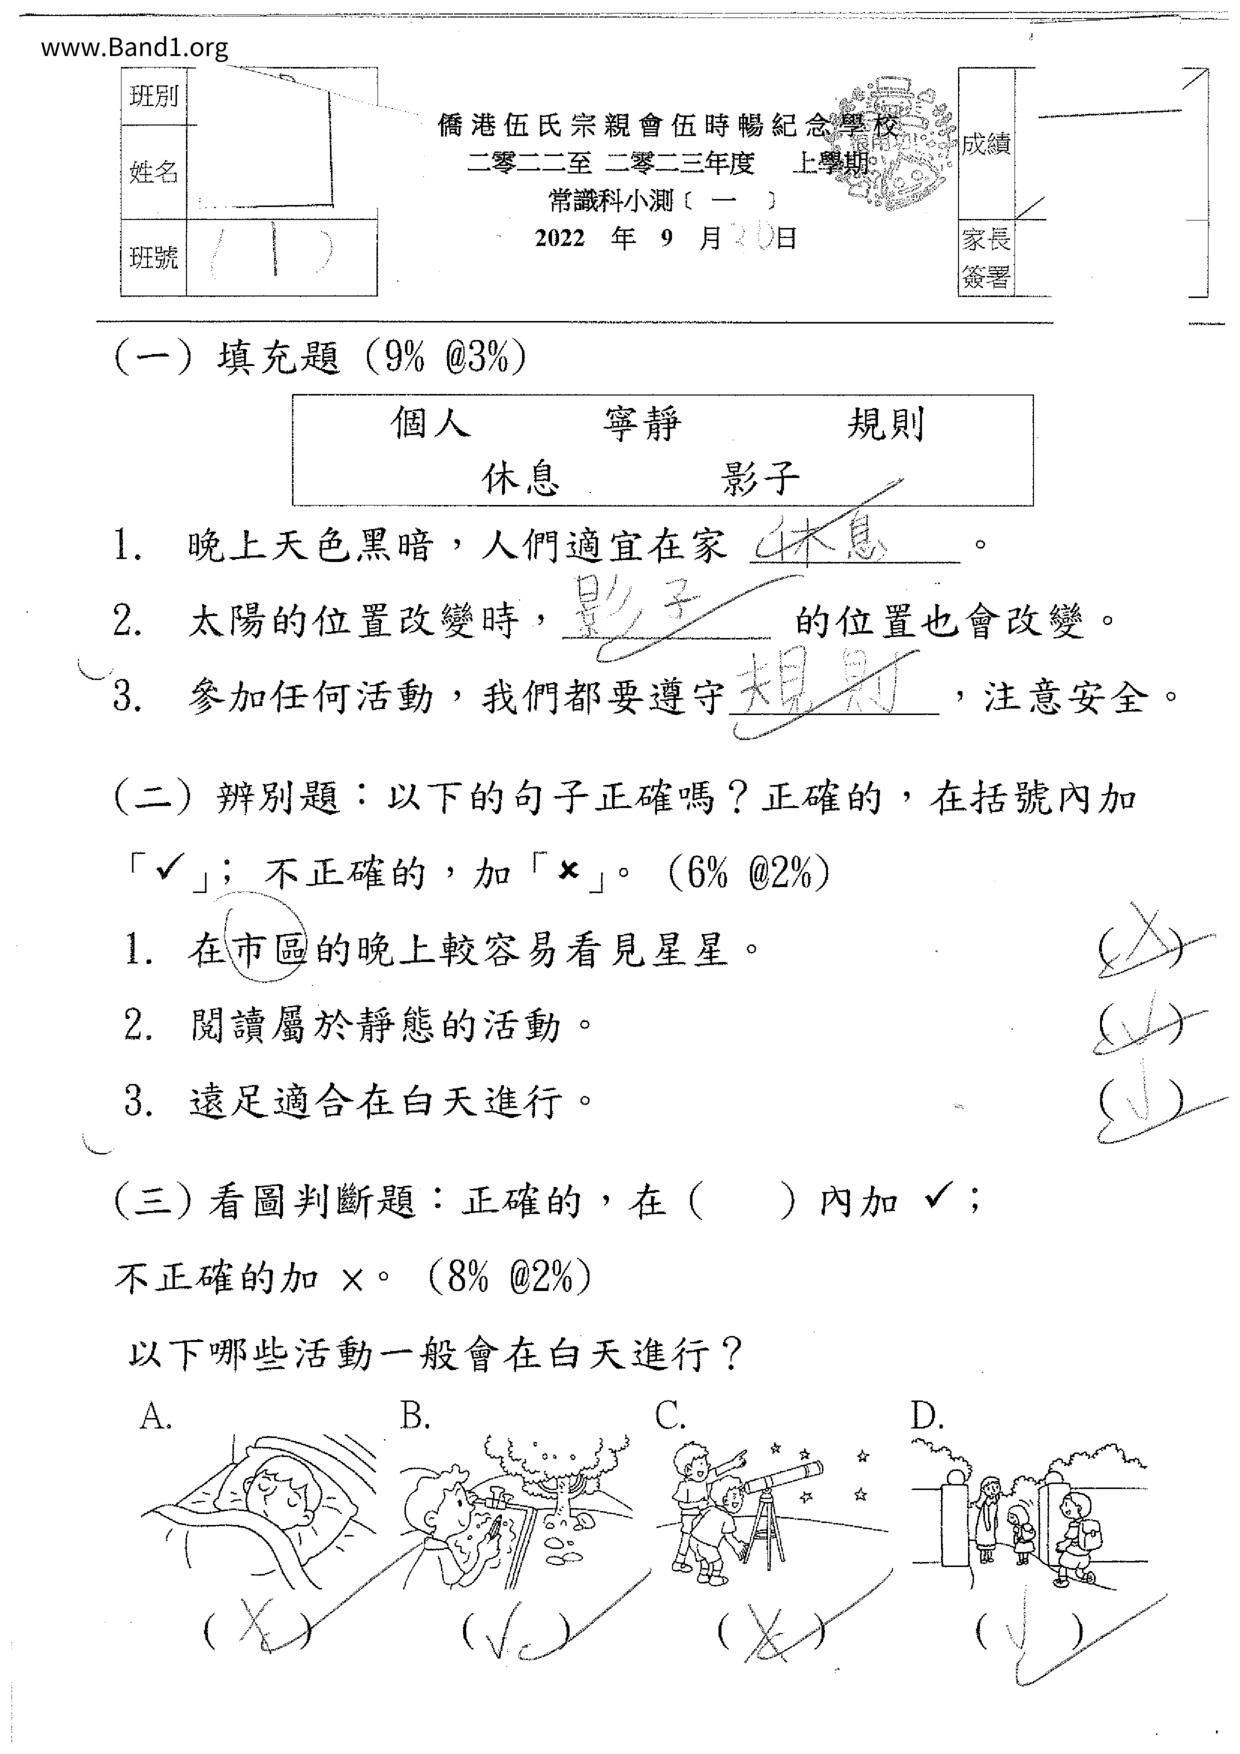 www.Band1.org
班別
姓名
班號 ( 1 )
僑港伍氏宗親會伍時暢紀念學校
二零二二至 二零二三年度 上學期
常識科小測﹝ 一 ﹞
2022 年 9 月 20 日
成績
家長
簽署
(一) 填充題 (9% @3%)
個人 寧靜 規則
休息 影子
1. 晚上天色黑暗，人們適宜在家 休息 。
2. 太陽的位置改變時， 影子 的位置也會改變。
3. 參加任何活動，我們都要遵守 規則 ，注意安全。
(二) 辨別題：以下的句子正確嗎？正確的，在括號內加
「✓」；不正確的，加「✗」。 (6% @2%)
1. 在市區的晚上較容易看見星星。 (✗)
2. 閱讀屬於靜態的活動。 (✓)
3. 遠足適合在白天進行。 (✓)
(三) 看圖判斷題：正確的，在 ( ) 內加 ✓；
不正確的加 ×。 (8% @2%)
以下哪些活動一般會在白天進行？
A. B. C. D.
(✗) (✓) (✗) (✓)